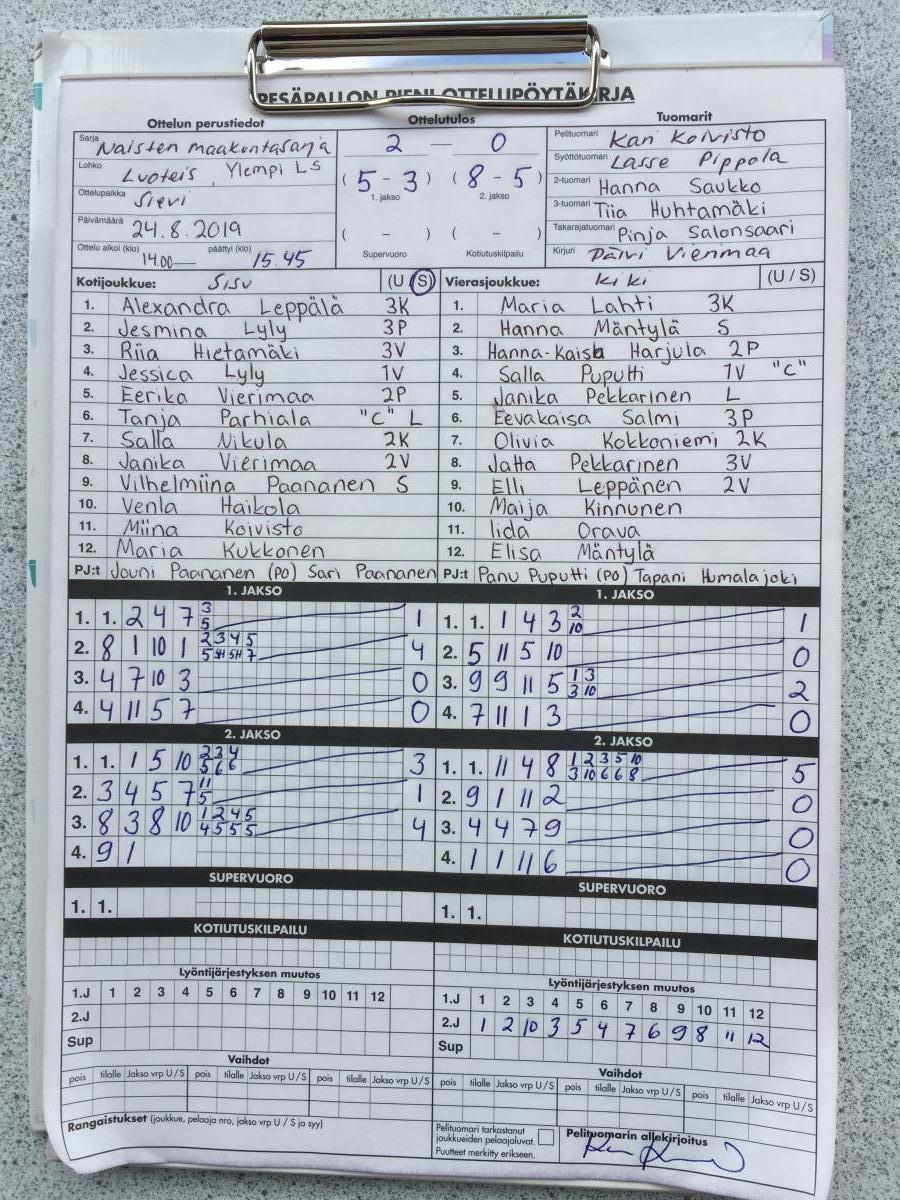 PESÄPALLON PIENI OTTELUPÖYTÄKIRJA
Ottelun perustiedot
Sarja Naisten maakuntasarja
Lohko Luoteis, Ylempi LS
Ottelupaikka Sievi
Päivämäärä 24.8.2019
Ottelu alkoi (klo) 14.00 päättyi (klo) 15.45
Ottelutulos
2 — 0
(5 - 3) (8 - 5)
1. jakso 2. jakso
( – ) ( – )
Supervuoro Kotiutuskilpailu
Tuomarit
Pelituomari Kari Koivisto
Syöttötuomari Lasse Pippola
2-tuomari Hanna Saukko
3-tuomari Tiia Huhtamäki
Takarajatuomari Pinja Salonsaari
Kirjuri Päivi Vierimaa
Kotijoukkue: Sisu (U / S)
1. Alexandra Leppälä 3K
2. Jesmina Lyly 3P
3. Riia Hietamäki 3V
4. Jessica Lyly 1V
5. Eerika Vierimaa 2P
6. Tanja Parhiala "C" L
7. Salla Nikula 2K
8. Janika Vierimaa 2V
9. Vilhelmiina Paananen S
10. Venla Haikola
11. Miina Koivisto
12. Maria Kukkonen
PJ:t Jouni Paananen (PO) Sari Paananen
Vierasjoukkue: KiKi (U / S)
1. Maria Lahti 3K
2. Hanna Mäntylä S
3. Hanna-Kaisa Harjula 2P
4. Salla Puputti 1V "C"
5. Janika Pekkarinen L
6. Eevakaisa Salmi 3P
7. Olivia Kokkoniemi 2K
8. Jatta Pekkarinen 3V
9. Elli Leppänen 2V
10. Maija Kinnunen
11. Iida Orava
12. Elisa Mäntylä
PJ:t Panu Puputti (PO) Tapani Humalajoki
1. JAKSO
1. 1. 2 4 7 3 1
5
2. 8 1 10 1 2 3 4 5 4
5 5H 5H 7
3. 4 7 10 3 0
4. 4 11 5 7 0
2. JAKSO
1. 1. 1 5 10 2 3 4 3
5 6 6
2. 3 4 5 7 11 1
5
3. 8 3 8 10 1 2 4 5 4
4 5 5 5
4. 9 1
SUPERVUORO
1. 1.
KOTIUTUSKILPAILU
Lyöntijärjestyksen muutos
1.J 1 2 3 4 5 6 7 8 9 10 11 12
2.J
Sup
Vaihdot
pois tilalle Jakso vrp U/S pois tilalle Jakso vrp U/S pois tilalle Jakso vrp U/S
Rangaistukset (joukkue, pelaaja nro, jakso vrp U / S ja syy)
1. JAKSO
1. 1. 1 4 3 2 1
10
2. 5 11 5 10 0
3. 9 9 11 5 1 3 2
3 10
4. 7 11 1 3 0
2. JAKSO
1. 1. 11 4 8 1 2 3 5 10 5
3 10 6 6 8
2. 9 1 11 2 0
3. 4 4 7 9 0
4. 1 1 11 6 0
SUPERVUORO
1. 1.
KOTIUTUSKILPAILU
Lyöntijärjestyksen muutos
1.J 1 2 3 4 5 6 7 8 9 10 11 12
2.J 1 2 10 3 5 4 7 6 9 8 11 12
Sup
Vaihdot
pois tilalle Jakso vrp U/S pois tilalle Jakso vrp U/S pois tilalle Jakso vrp U/S
Pelituomari tarkastanut
joukkueiden pelaajaluvat.
Puutteet merkitty erikseen.
Pelituomarin allekirjoitus